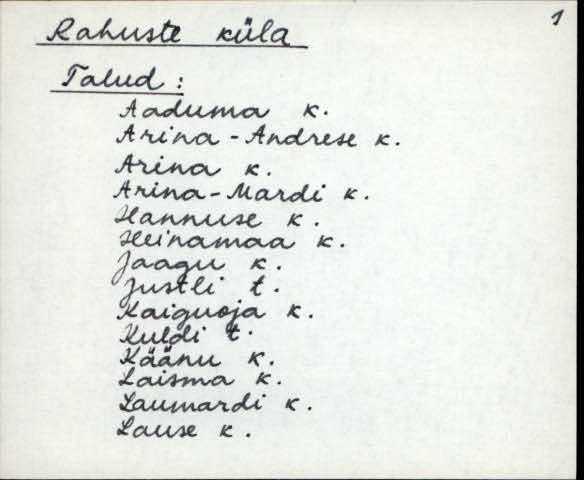 1
Rahuste küla
Talud:
Aaduma k.
Arina-Andrese k.
Arina k.
Arina-Mardi k.
Hannuse k.
Heinamaa k.
Jaagu k.
Justli t.
Kaiguoja k.
Kuldi t.
Käänu k.
Laisma k.
Laumardi k.
Lause k.